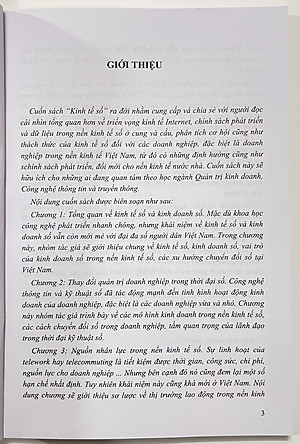 GIỚI THIỆU
Cuốn sách “Kinh tế số” ra đời nhằm cung cấp và chia sẻ với người đọc
cái nhìn tổng quan hơn về triển vọng kinh tế Internet, chính sách phát triển
và dữ liệu trong nền kinh tế số ở cung và cầu, phân tích cơ hội cũng như
thách thức của kinh tế số đối với các doanh nghiệp, đặc biệt là doanh
nghiệp trong nền kinh tế Việt Nam, từ đó có những định hướng cũng như
chính sách phát triển, đổi mới cho nền kinh tế nước nhà. Cuốn sách này sẽ
hữu ích cho những ai đang quan tâm theo học ngành Quản trị kinh doanh,
Công nghệ thông tin và truyền thông.
Nội dung cuốn sách được biên soạn như sau:
Chương 1: Tổng quan về kinh tế số và kinh doanh số. Mặc dù khoa học
công nghệ phát triển nhanh chóng, nhưng khái niệm về kinh tế số và kinh
doanh số vẫn còn mới mẻ với đại đa số người dân Việt Nam. Trong chương
này, nhóm tác giả sẽ giới thiệu chung về kinh tế số, kinh doanh số, vai trò
của kinh doanh số trong nền kinh tế số, các xu hướng chuyển đổi số tại
Việt Nam.
Chương 2: Thay đổi quản trị doanh nghiệp trong thời đại số. Công nghệ
thông tin và kỹ thuật số đã tác động mạnh đến tình hình hoạt động kinh
doanh của doanh nghiệp, đặc biệt là các doanh nghiệp vừa và nhỏ. Chương
này nhóm tác giả trình bày về các mô hình kinh doanh trong nền kinh tế số,
các cách chuyển đổi số trong doanh nghiệp, tầm quan trọng của lãnh đạo
trong thời đại kỹ thuật số.
Chương 3: Nguồn nhân lực trong nền kinh tế số. Sự linh hoạt của
telework hay telecommuting là tiết kiệm được thời gian, công sức, chi phí,
nguồn lực cho doanh nghiệp ... Nhưng bên cạnh đó nó cũng đem lại một số
hạn chế nhất định. Tuy nhiên khái niệm này cũng khá mới ở Việt Nam. Nội
dung chương sẽ giới thiệu sơ lược về thị trường lao động trong nền kinh
3